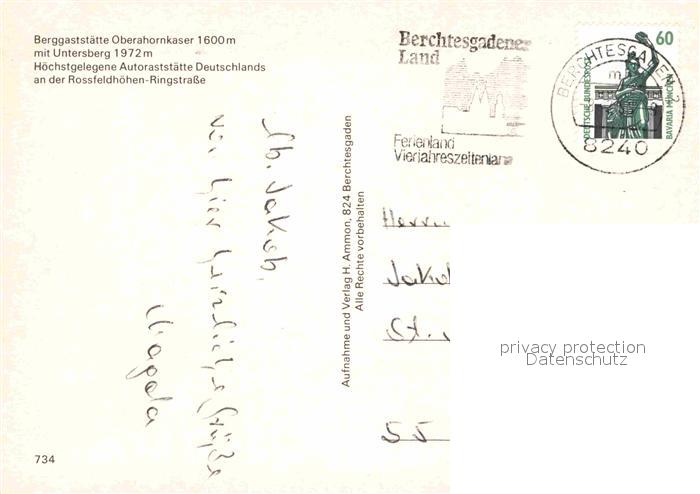 Berggaststätte Oberahornkaser 1600 m
mit Untersberg 1972 m
Höchstgelegene Autoraststätte Deutschlands
an der Rossfeldhöhen-Ringstraße
Berchtesgadener
Land
Ferienland
Vierjahreszeitenland
BERCHTESGADEN 2
m
8240
60
DEUTSCHE BUNDESPOST
BAVARIA MÜNCHEN
Lb. Jakob,
von hier herzliche Grüße
Magda
Aufnahme und Verlag H. Ammon, 824 Berchtesgaden
Alle Rechte vorbehalten
Herrn
Jakob
St.
55
privacy protection
Datenschutz
734